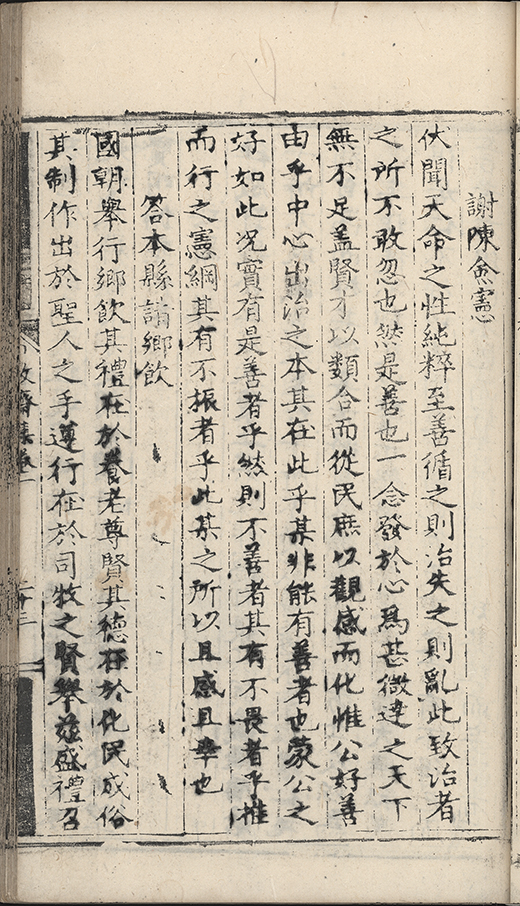 謝陳僉憲
伏聞天命之性純粹至善循之則治失之則亂此致治者
之所不敢忽也然是善也一念發於心爲甚微達之天下
無不足盖賢才以類合而從民庶以觀感而化惟公好善
由乎中心出治之本其在此乎某非能有善者也蒙公之
好如此况實有是善者乎然則不善者其有不畏者乎推
而行之憲綱其有不振者乎此某之所以且感且幸也
答本縣請鄉飲
國朝舉行鄉飲其禮在於養老尊賢其德在於化民成俗
其制作出於聖人之手遵行在於司牧之賢舉兹盛禮召
齋集卷一
二十三